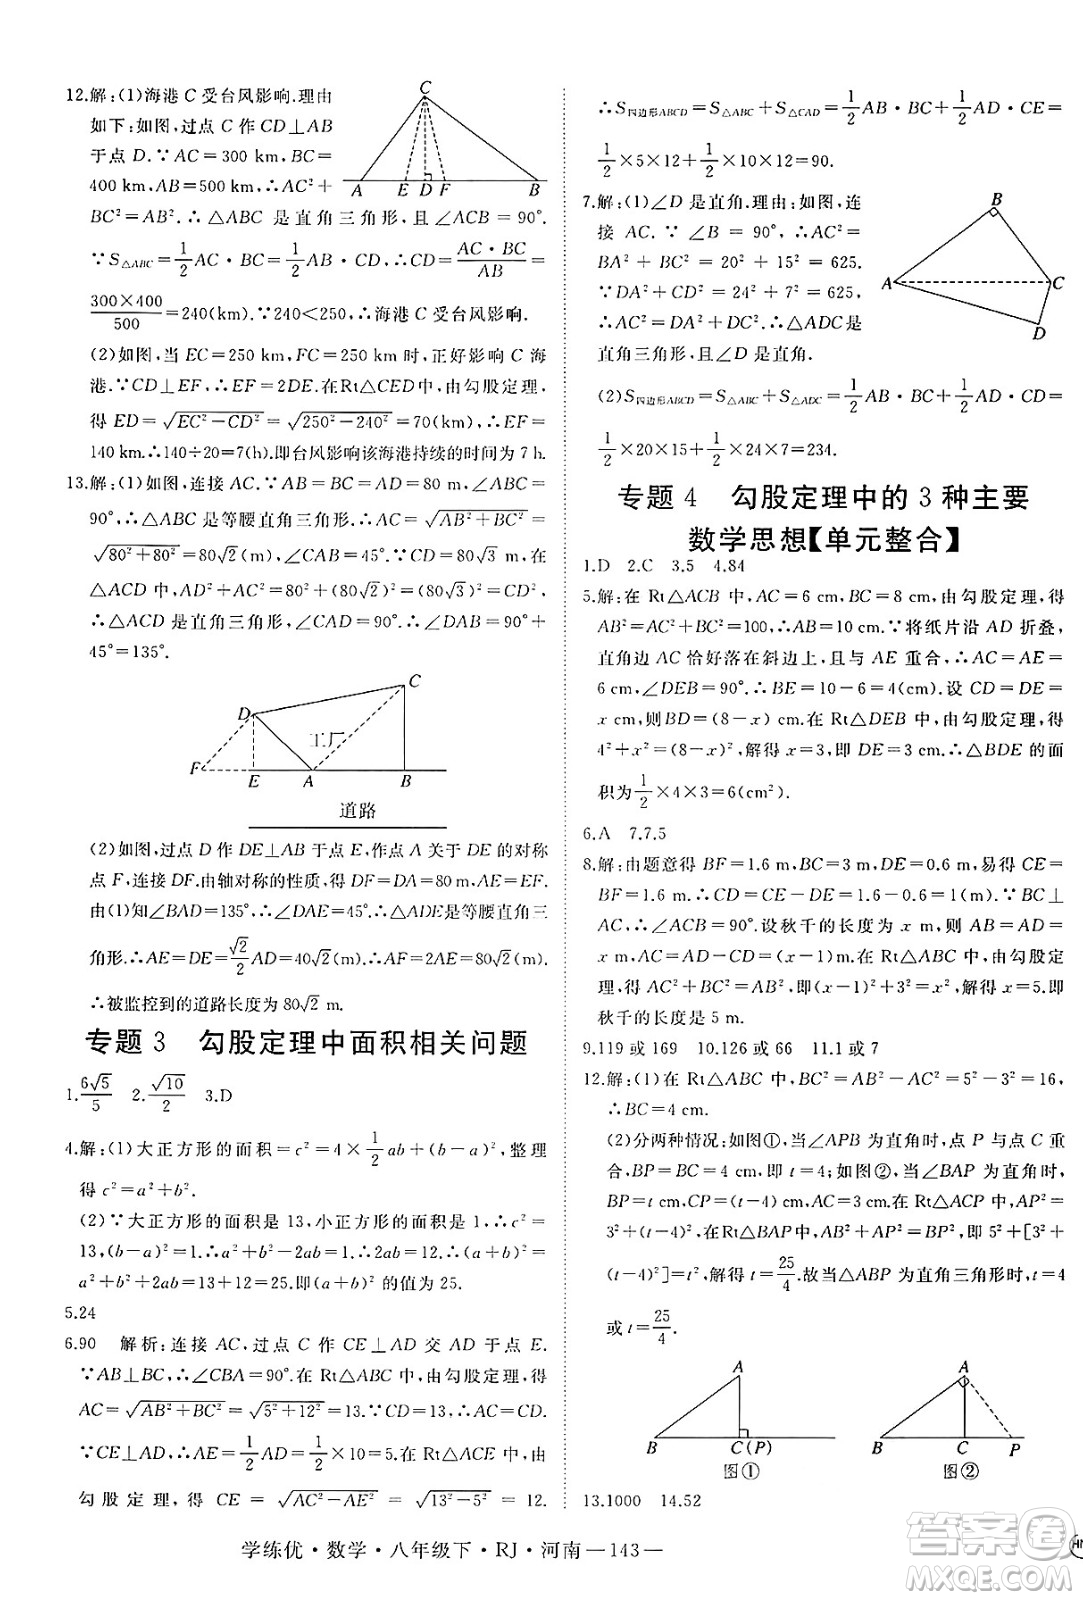 12.解:(1)海港 C 受台风影响.理由
如下:如图,过点 C 作 CD⊥AB
于点 D.∵AC=300 km,BC=
400 km,AB=500 km,∴AC²+
BC²=AB².∴△ABC 是直角三角形,且∠ACB=90°.
∵S△ABC=1/2 AC·BC=1/2 AB·CD,∴CD=AC·BC/AB=
300×400/500=240(km).∵240<250,∴海港 C 受台风影响.
(2)如图,当 EC=250 km,FC=250 km 时,正好影响 C 海
港.∵CD⊥EF,∴EF=2DE.在Rt△CED中,由勾股定理,
得 ED=√(EC²-CD²)=√(250²-240²)=70(km).∴EF=
140 km.∴140÷20=7(h).即台风影响该海港持续的时间为 7 h.
C
A E D F B
13.解:(1)如图,连接 AC.∵AB=BC=80 m,∠ABC=
90°,∴△ABC 是等腰直角三角形.∴AC=√(AB²+BC²)=
√(80²+80²)=80√2(m),∠CAB=45°.∵CD=80√3 m,在
△ACD 中,AD²+AC²=80²+(80√2)²=(80√3)²=CD²,
∴△ACD 是直角三角形.∴∠DAC=90°.∴∠DAB=90°+
45°=135°.
D C
工厂
F E A B
道路
(2)如图,过点 D 作 DE⊥AB 于点 E,作点 A 关于 DE 的对称
点 F,连接 DF.由轴对称的性质,得 DF=DA=80 m,AE=EF.
由(1)知∠BAD=135°,∴∠DAE=45°.∴△ADE是等腰直角三
角形.∴AE=DE=√2/2 AD=40√2(m).∴AF=2AE=80√2(m).
∴被监控到的道路长度为 80√2 m.
专题 3 勾股定理中面积相关问题
1.6√5/5 2.√10/2 3.D
4.解:(1)大正方形的面积=c²=4×1/2 ab+(b-a)²,整理
得 c²=a²+b².
(2)∵大正方形的面积是 13,小正方形的面积是 1,∴c²=
13,(b-a)²=1.∴4×1/2 ab=13-1=12,即 2ab=12.∴(a+b)²=
a²+b²+2ab=13+12=25.即(a+b)²的值为 25.
5.24
6.90 解析:连接 AC,过点 C 作 CE⊥AD 交 AD 于点 E.
∵AB⊥BC,∴∠CBA=90°.在 Rt△ABC 中,由勾股定理,得
AC=√(AB²+BC²)=√(5²+12²)=13.∵CD=13,∴AC=CD.
∵CE⊥AD,∴AE=1/2 AD=1/2×10=5.在 Rt△ACE 中,由
勾股定理,得 CE=√(AC²-AE²)=√(13²-5²)=12.
∴S四边形ABCD=S△ABC+S△CAD=1/2 AB·BC+1/2 AD·CE=
1/2×5×12+1/2×10×12=90.
7.解:(1)∠D 是直角.理由:如图,连
接 AC.∵∠B=90°,∴AC²=
BA²+BC²=20²+15²=625.
∵DA²+CD²=24²+7²=625,
∴AC²=DA²+DC².∴△ADC是
直角三角形,且∠D 是直角.
B
A C
D
(2)S四边形ABCD=S△ABC+S△ADC=1/2 AB·BC+1/2 AD·CD=
1/2×20×15+1/2×24×7=234.
专题 4 勾股定理中的 3 种主要
数学思想【单元整合】
1.D 2.C 3.5 4.84
5.解:在 Rt△ACB 中,AC=6 cm,BC=8 cm,由勾股定理,得
AB²=AC²+BC²=100,∴AB=10 cm.∵将纸片沿 AD 折叠,
直角边 AC 恰好落在斜边上,且与 AE 重合,∴AC=AE=
6 cm,∠DEB=90°.∴BE=10-6=4(cm).设 CD=DE=
x cm,则BD=(8-x) cm.在 Rt△DEB 中,由勾股定理,得
4²+x²=(8-x)²,解得 x=3,即 DE=3 cm.∴△BDE 的面
积为1/2×4×3=6(cm²).
6.A 7.7.5
8.解:由题意得 BF=1.6 m,BC=3 m,DE=0.6 m,易得 CE=
BF=1.6 m.∴CD=CE-DE=1.6-0.6=1(m).∵BC⊥
AC,∴∠ACB=90°.设秋千的长度为 x m,则 AB=AD=
x m,AC=AD-CD=(x-1)m.在 Rt△ACB 中,由勾股定
理,得AC²+BC²=AB²,即(x-1)²+3²=x²,解得x=5.即
秋千的长度是 5 m.
9.119 或 169 10.126 或 66 11.1 或 7
12.解:(1)在 Rt△ABC 中,BC²=AB²-AC²=5²-3²=16,
∴BC=4 cm.
(2)分两种情况:如图①,当∠APB 为直角时,点 P 与点 C 重
合,BP=BC=4 cm,即 t=4;如图②,当∠BAP 为直角时,
BP=t cm,CP=(t-4)cm,AC=3 cm.在 Rt△ACP 中,AP²=
3²+(t-4)².在 Rt△BAP中,AB²+AP²=BP²,即 5²+[3²+
(t-4)²]=t²,解得 t=25/4.故当△ABP 为直角三角形时,t=4
或 t=25/4.
A A
B C(P) B C P
图① 图②
13.1000 14.52
学练优·数学·八年级下·RJ·河南—143—
答案卷
MXQE.COM